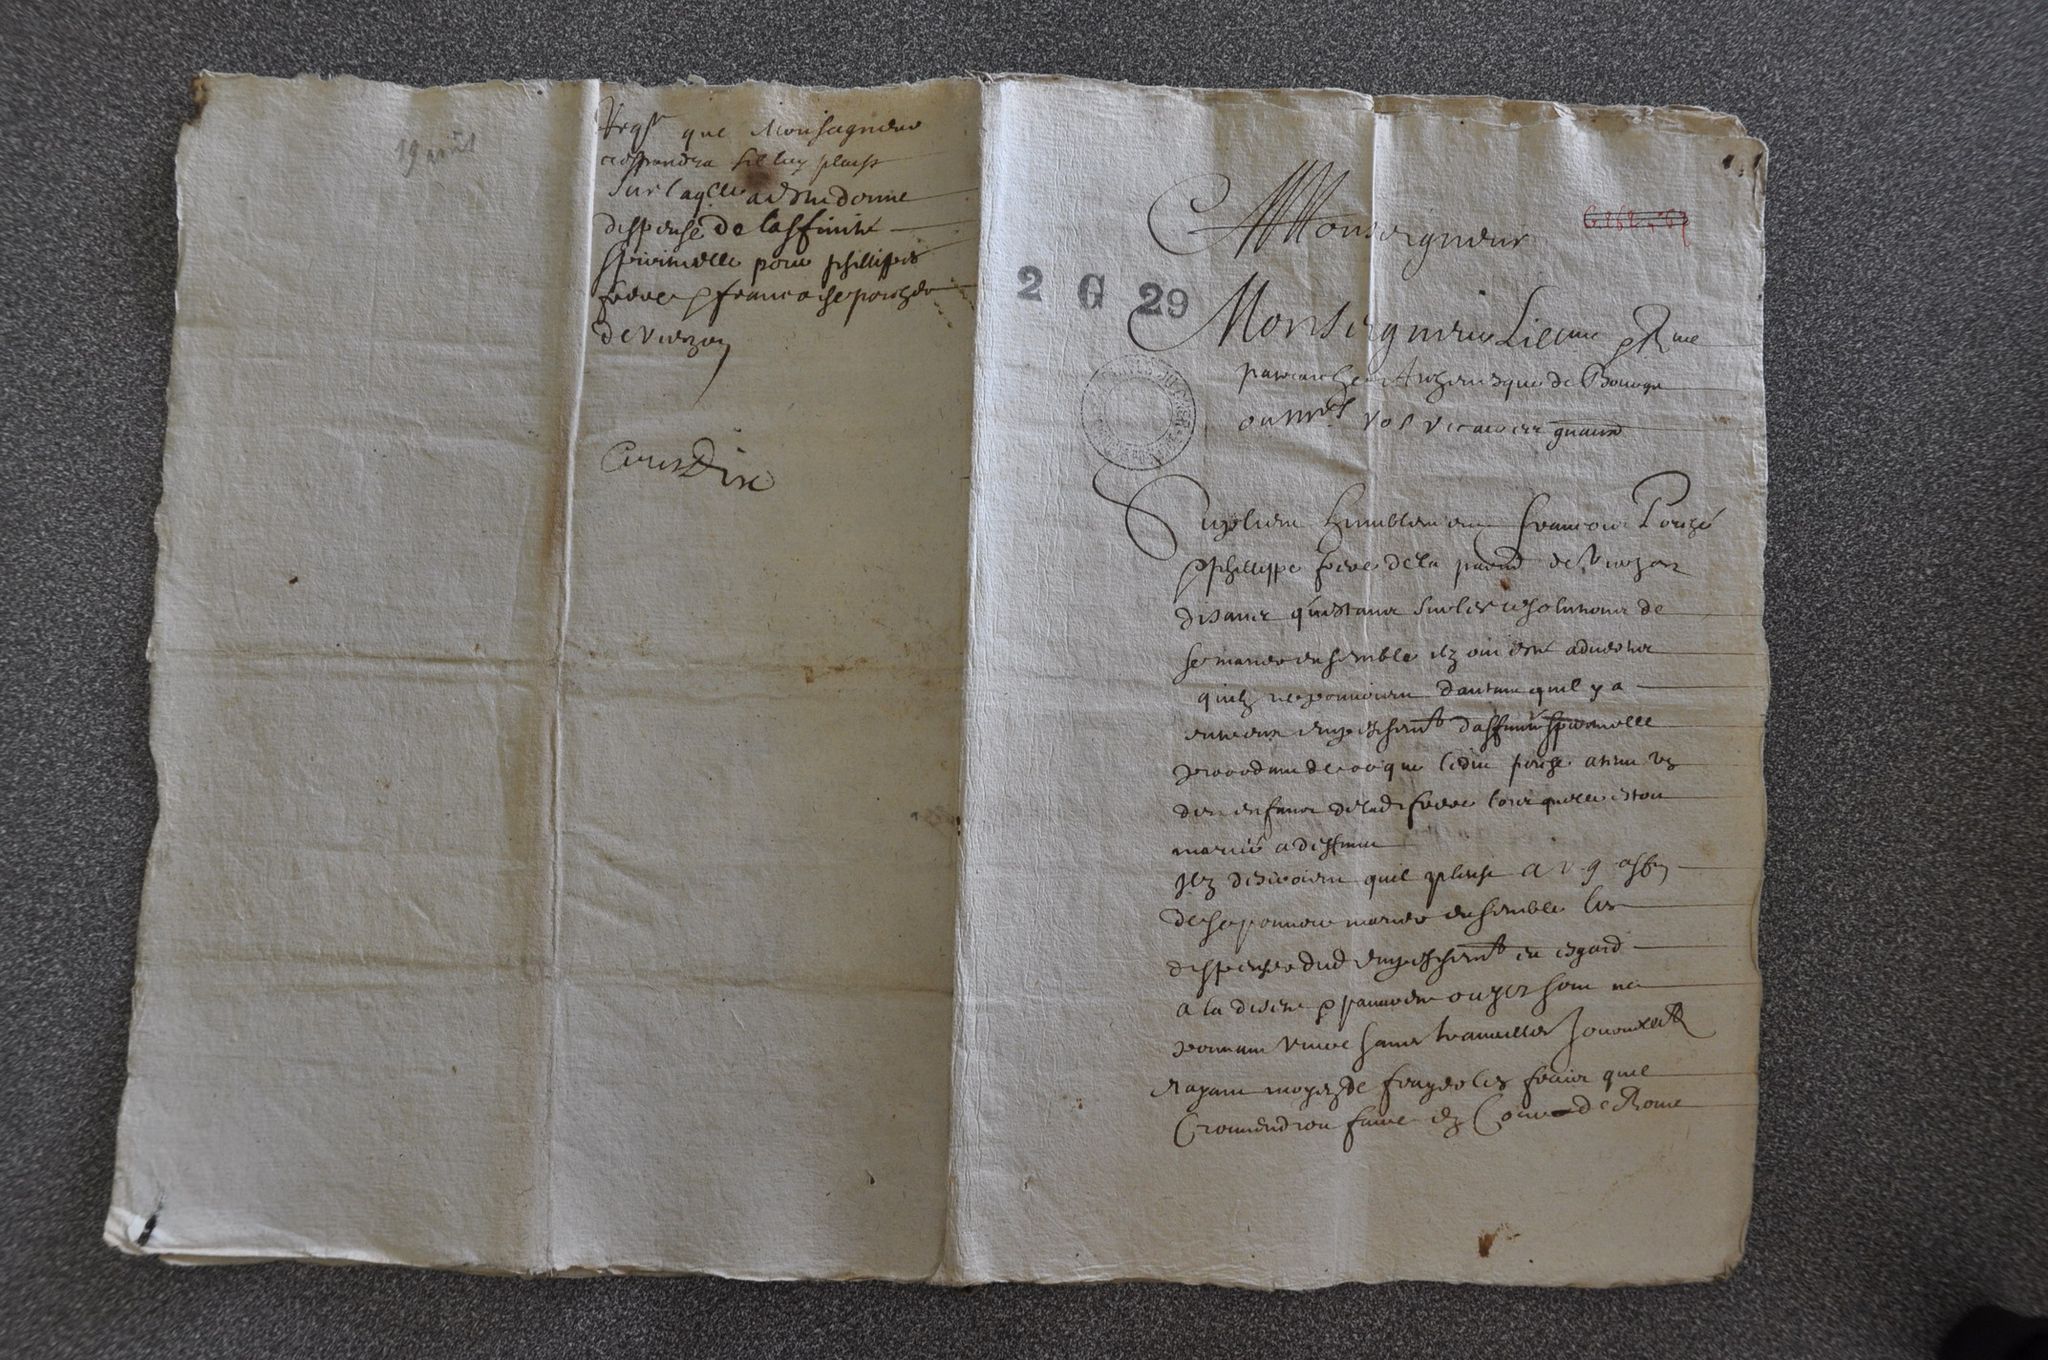 19 août
Reqte que Monseigneur
respondra sil luy plaist
Sur laqlle a esté donné
dispense de laffinité
spirituelle pour phillippes
frere & francoise pouzé
de Vierzon
Monseigneur
2 G 29
Monseigneur Lillme & Rme
patriarche Archevesque de Bourges
ou Mrs vos vicaires gnaux
Suplient humblement francois Pouzé
& Phillippe frere de la parr de Vierzon
disant questant sur les resolutions de
se marier ensemble ilz ont esté advertis
quilz ne pouvoient dautant quil y a
entreux empeschemt daffinité spirituelle
procedant de ce que ledit pouzé a tenu un
des enfans de lad frere lors quelle estoit
mariée a deffunt
Ilz desireroient quil pleust a V G affin
de se pouvoir marier ensemble les
dispenser dud empeschemt en esgard
a la disette & pauvreté ou ilz sont ne
pouvant vivre sans travailler journellemt
nayant moyen de frayer les frais quil
conviendroit faire en Cour de Rome